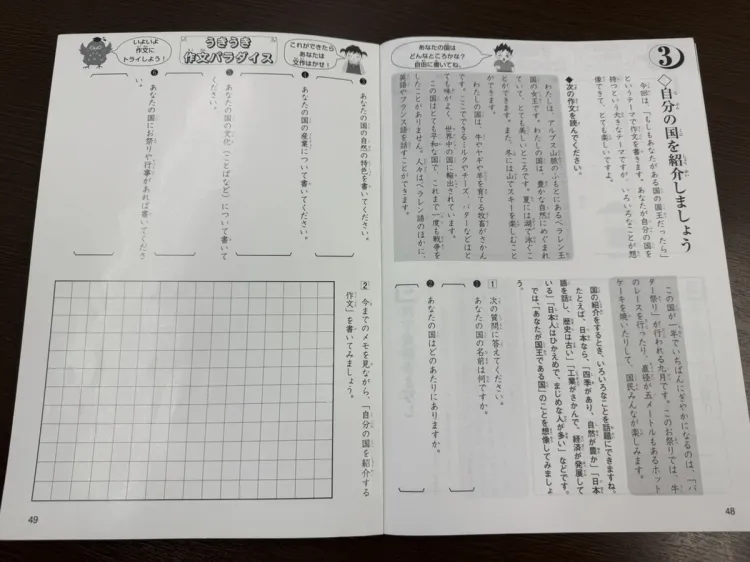 3
◇自分の国を紹介しましょう
あなたの国は
どんなところかな?
自由に書いてね。
今回は、「もしもあなたがある国の国王だったら」
というテーマで作文を書きます。あなたが自分の国を
持つという大きなテーマですが、いろいろなことが想
像できて、とても楽しいですよ。
◆次の作文を読んでください。
わたしは、アルプス山脈のふもとにあるベラレン王
国の女王です。わたしの国は、豊かな自然にめぐまれ
ていて、とても美しいところです。夏には湖で泳ぐこ
とができます。また、冬には山でスキーを楽しむこと
ができます。
わたしの国は、牛やヤギや羊を育てる牧畜がさかん
です。ここでできるミルクやチーズ、バターなどはと
ても味がよく、世界中の国に輸出されています。
この国はとても平和な国で、これまで一度も戦争を
したことがありません。人々はベラレン語のほかに、
英語やフランス語を話すことができます。
この国が一年でいちばんにぎやかになるのは、「バ
ター祭り」が行われる九月です。このお祭りでは、牛
のレースを行ったり、直径が五メートルもあるホット
ケーキを焼いたりして、国民みんなが楽しみます。
国の紹介をするとき、いろいろなことを話題にできますね。
たとえば、日本なら、「四季があり、自然が豊か」「日本
語を話し、歴史は古い」「工業がさかんで、経済が発展して
いる」「日本人はひかえめで、まじめな人が多い」などです。
では、「あなたが国王である国」のことを想像してみましょ
う。
1 次の質問に答えてください。
❶ あなたの国の名前は何ですか。
❷ あなたの国はどのあたりにありますか。
48
これができたら
あなたは
文作はかせ!
うきうき
作文パラダイス
いよいよ
作文に
トライしよう!
❸ あなたの国の自然の特色を書いてください。
❹ あなたの国の産業について書いてください。
❺ あなたの国の文化(ことばなど)について書いて
ください。
❻ あなたの国にお祭りや行事があれば書いてくださ
い。
2 今までのメモを見ながら、「自分の国を紹介する
作文」を書いてみましょう。
49